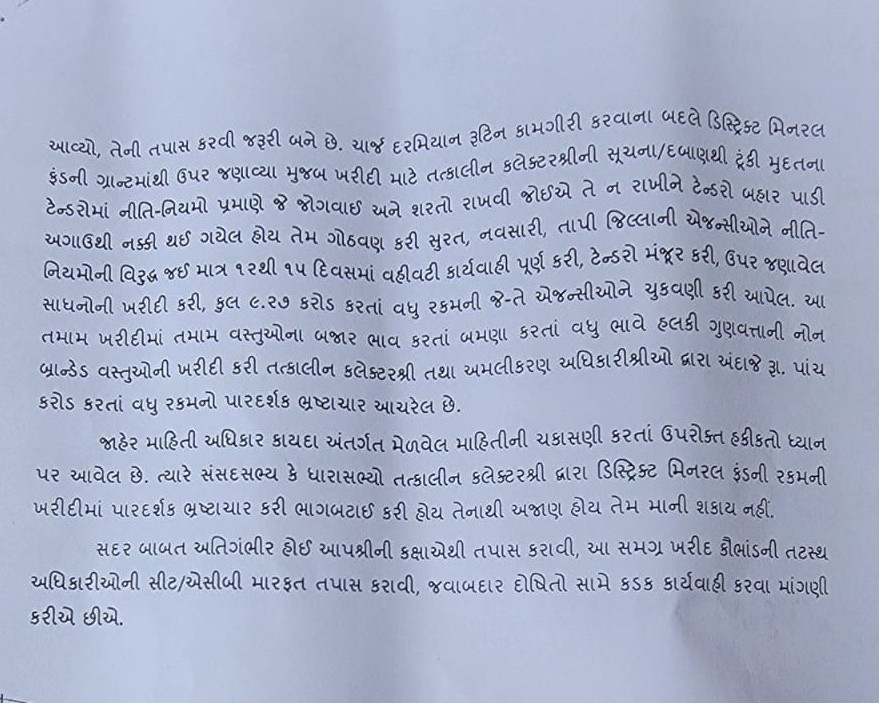 આવ્યો, તેની તપાસ કરવી જરૂરી બને છે. ચાર્જ દરમિયાન રૂટિન કામગીરી કરવાના બદલે ડિસ્ટ્રિક્ટ મિનરલ
ફંડની ગ્રાન્ટમાંથી ઉપર જણાવ્યા મુજબ ખરીદી માટે તત્કાલીન કલેક્ટરશ્રીની સૂચના/દબાણથી ટૂંકી મુદતના
ટેન્ડરોમાં નીતિ-નિયમો પ્રમાણે જે જોગવાઈ અને શરતો રાખવી જોઈએ તે ન રાખીને ટેન્ડરો બહાર પાડી
અગાઉથી નક્કી થઈ ગયેલ હોય તેમ ગોઠવણ કરી સુરત, નવસારી, તાપી જિલ્લાની એજન્સીઓને નીતિ-
નિયમોની વિરુદ્ધ જઈ માત્ર ૧૨થી ૧૫ દિવસમાં વહીવટી કાર્યવાહી પૂર્ણ કરી, ટેન્ડરો મંજૂર કરી, ઉપર જણાવેલ
સાધનોની ખરીદી કરી, કુલ ૯.૨૭ કરોડ કરતાં વધુ રકમની જે-તે એજન્સીઓને ચુકવણી કરી આપેલ. આ
તમામ ખરીદીમાં તમામ વસ્તુઓના બજાર ભાવ કરતાં બમણા કરતાં વધુ ભાવે હલકી ગુણવત્તાની નોન
બ્રાન્ડેડ વસ્તુઓની ખરીદી કરી તત્કાલીન કલેક્ટરશ્રી તથા અમલીકરણ અધિકારીશ્રીઓ દ્વારા અંદાજે રૂા. પાંચ
કરોડ કરતાં વધુ રકમનો પારદર્શક ભ્રષ્ટાચાર આચરેલ છે.
જાહેર માહિતી અધિકાર કાયદા અંતર્ગત મેળવેલ માહિતીની ચકાસણી કરતાં ઉપરોક્ત હકીકતો ધ્યાન
પર આવેલ છે. ત્યારે સંસદસભ્ય કે ધારાસભ્યો તત્કાલીન કલેક્ટરશ્રી દ્વારા ડિસ્ટ્રિક્ટ મિનરલ ફંડની રકમની
ખરીદીમાં પારદર્શક ભ્રષ્ટાચાર કરી ભાગબટાઈ કરી હોય તેનાથી અજાણ હોય તેમ માની શકાય નહીં.
સદર બાબત અતિગંભીર હોઈ આપશ્રીની કક્ષાએથી તપાસ કરાવી, આ સમગ્ર ખરીદ કૌભાંડની તટસ્થ
અધિકારીઓની સીટ/એસીબી મારફત તપાસ કરાવી, જવાબદાર દોષિતો સામે કડક કાર્યવાહી કરવા માંગણી
કરીએ છીએ.